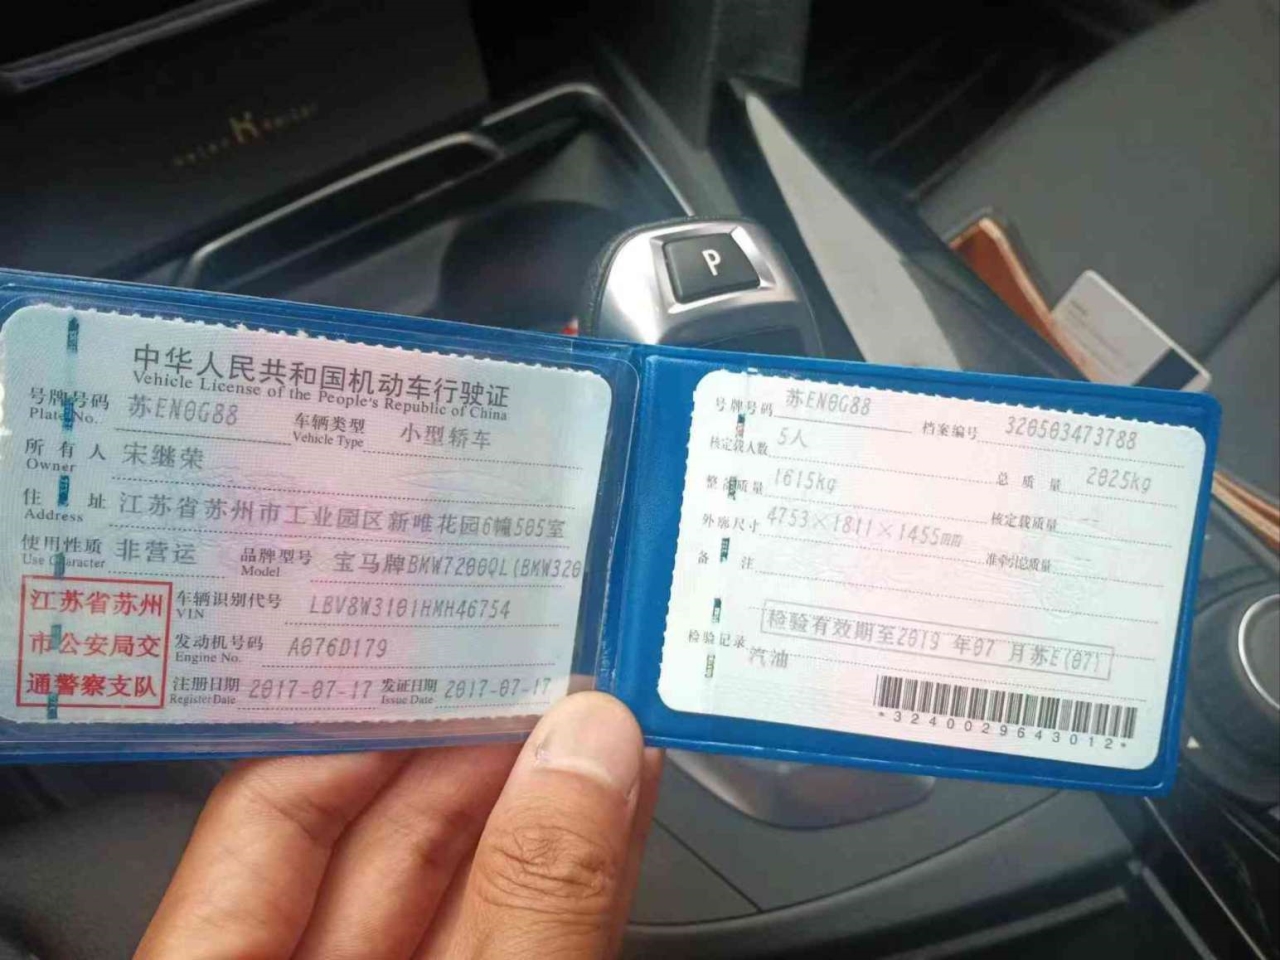 P
中华人民共和国机动车行驶证
Vehicle License of the People's Republic of China
号牌号码 苏EN0G88 车辆类型 小型轿车
Plate No. Vehicle Type
所有人 宋继荣
Owner
住址 江苏省苏州市工业园区新唯花园6幢505室
Address
使用性质 非营运 品牌型号 宝马牌BMW7200QL(BMW320
Use Character Model
江苏省苏州
市公安局交
通警察支队
车辆识别代号 LBV8W3101HMH46754
VIN
发动机号码 A076D179
Engine No.
注册日期 2017-07-17 发证日期 2017-07-17
Register Date Issue Date
号牌号码 苏EN0G88 档案编号 320503473788
核定载人数 5人 总质量 2025kg
整备质量 1615kg 核定载质量 --
外廓尺寸 4753×1811×1455mm 准牵引总质量 --
备注
检验有效期至2019年07月苏E(07)
检验记录
汽油
*3240029643012*